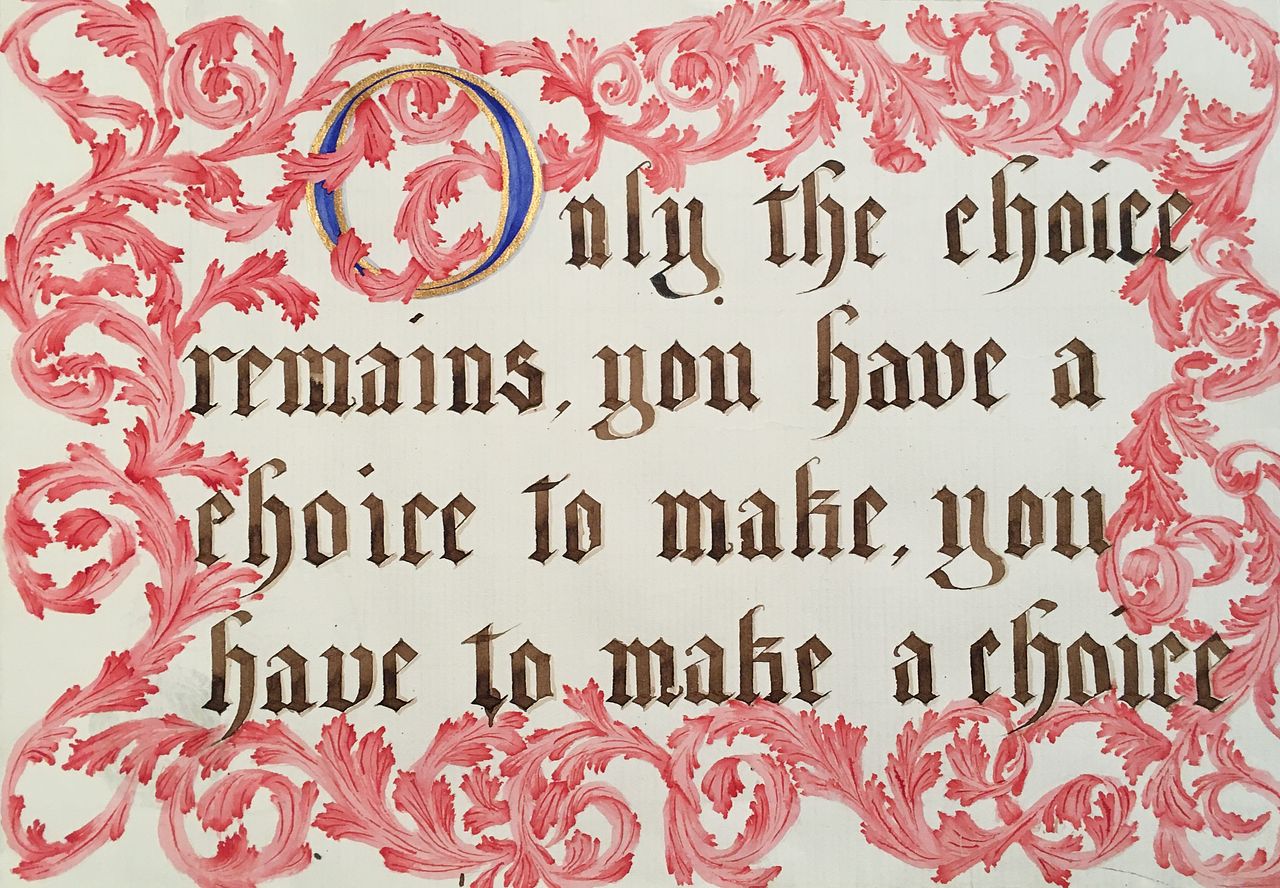 Only the choice
remains, you have a
choice to make, you
have to make a choice